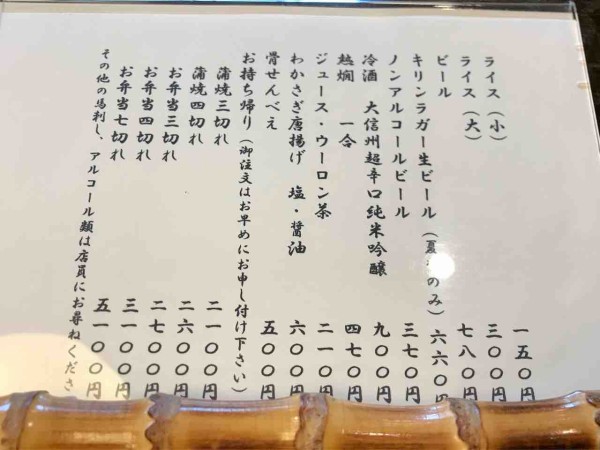 ライス（小）　一五〇円
ライス（大）　三〇〇円
ビール　七八〇円
キリンラガー生ビール（夏のみ）　六六〇円
ノンアルコールビール　三七〇円
冷酒　大信州超辛口純米吟醸　九〇〇円
熱燗　一合　四七〇円
ジュース・ウーロン茶　二一〇円
わかさぎ唐揚げ　塩・醤油　六〇〇円
骨せんべえ　五〇〇円
お持ち帰り（御注文はお早めにお申し付け下さい）
蒲焼三切れ　二一〇〇円
蒲焼四切れ　二六〇〇円
お弁当三切れ　二七〇〇円
お弁当四切れ　三一〇〇円
お弁当七切れ　五一〇〇円
その他の馬刺し、アルコール類は店員にお尋ねくださ